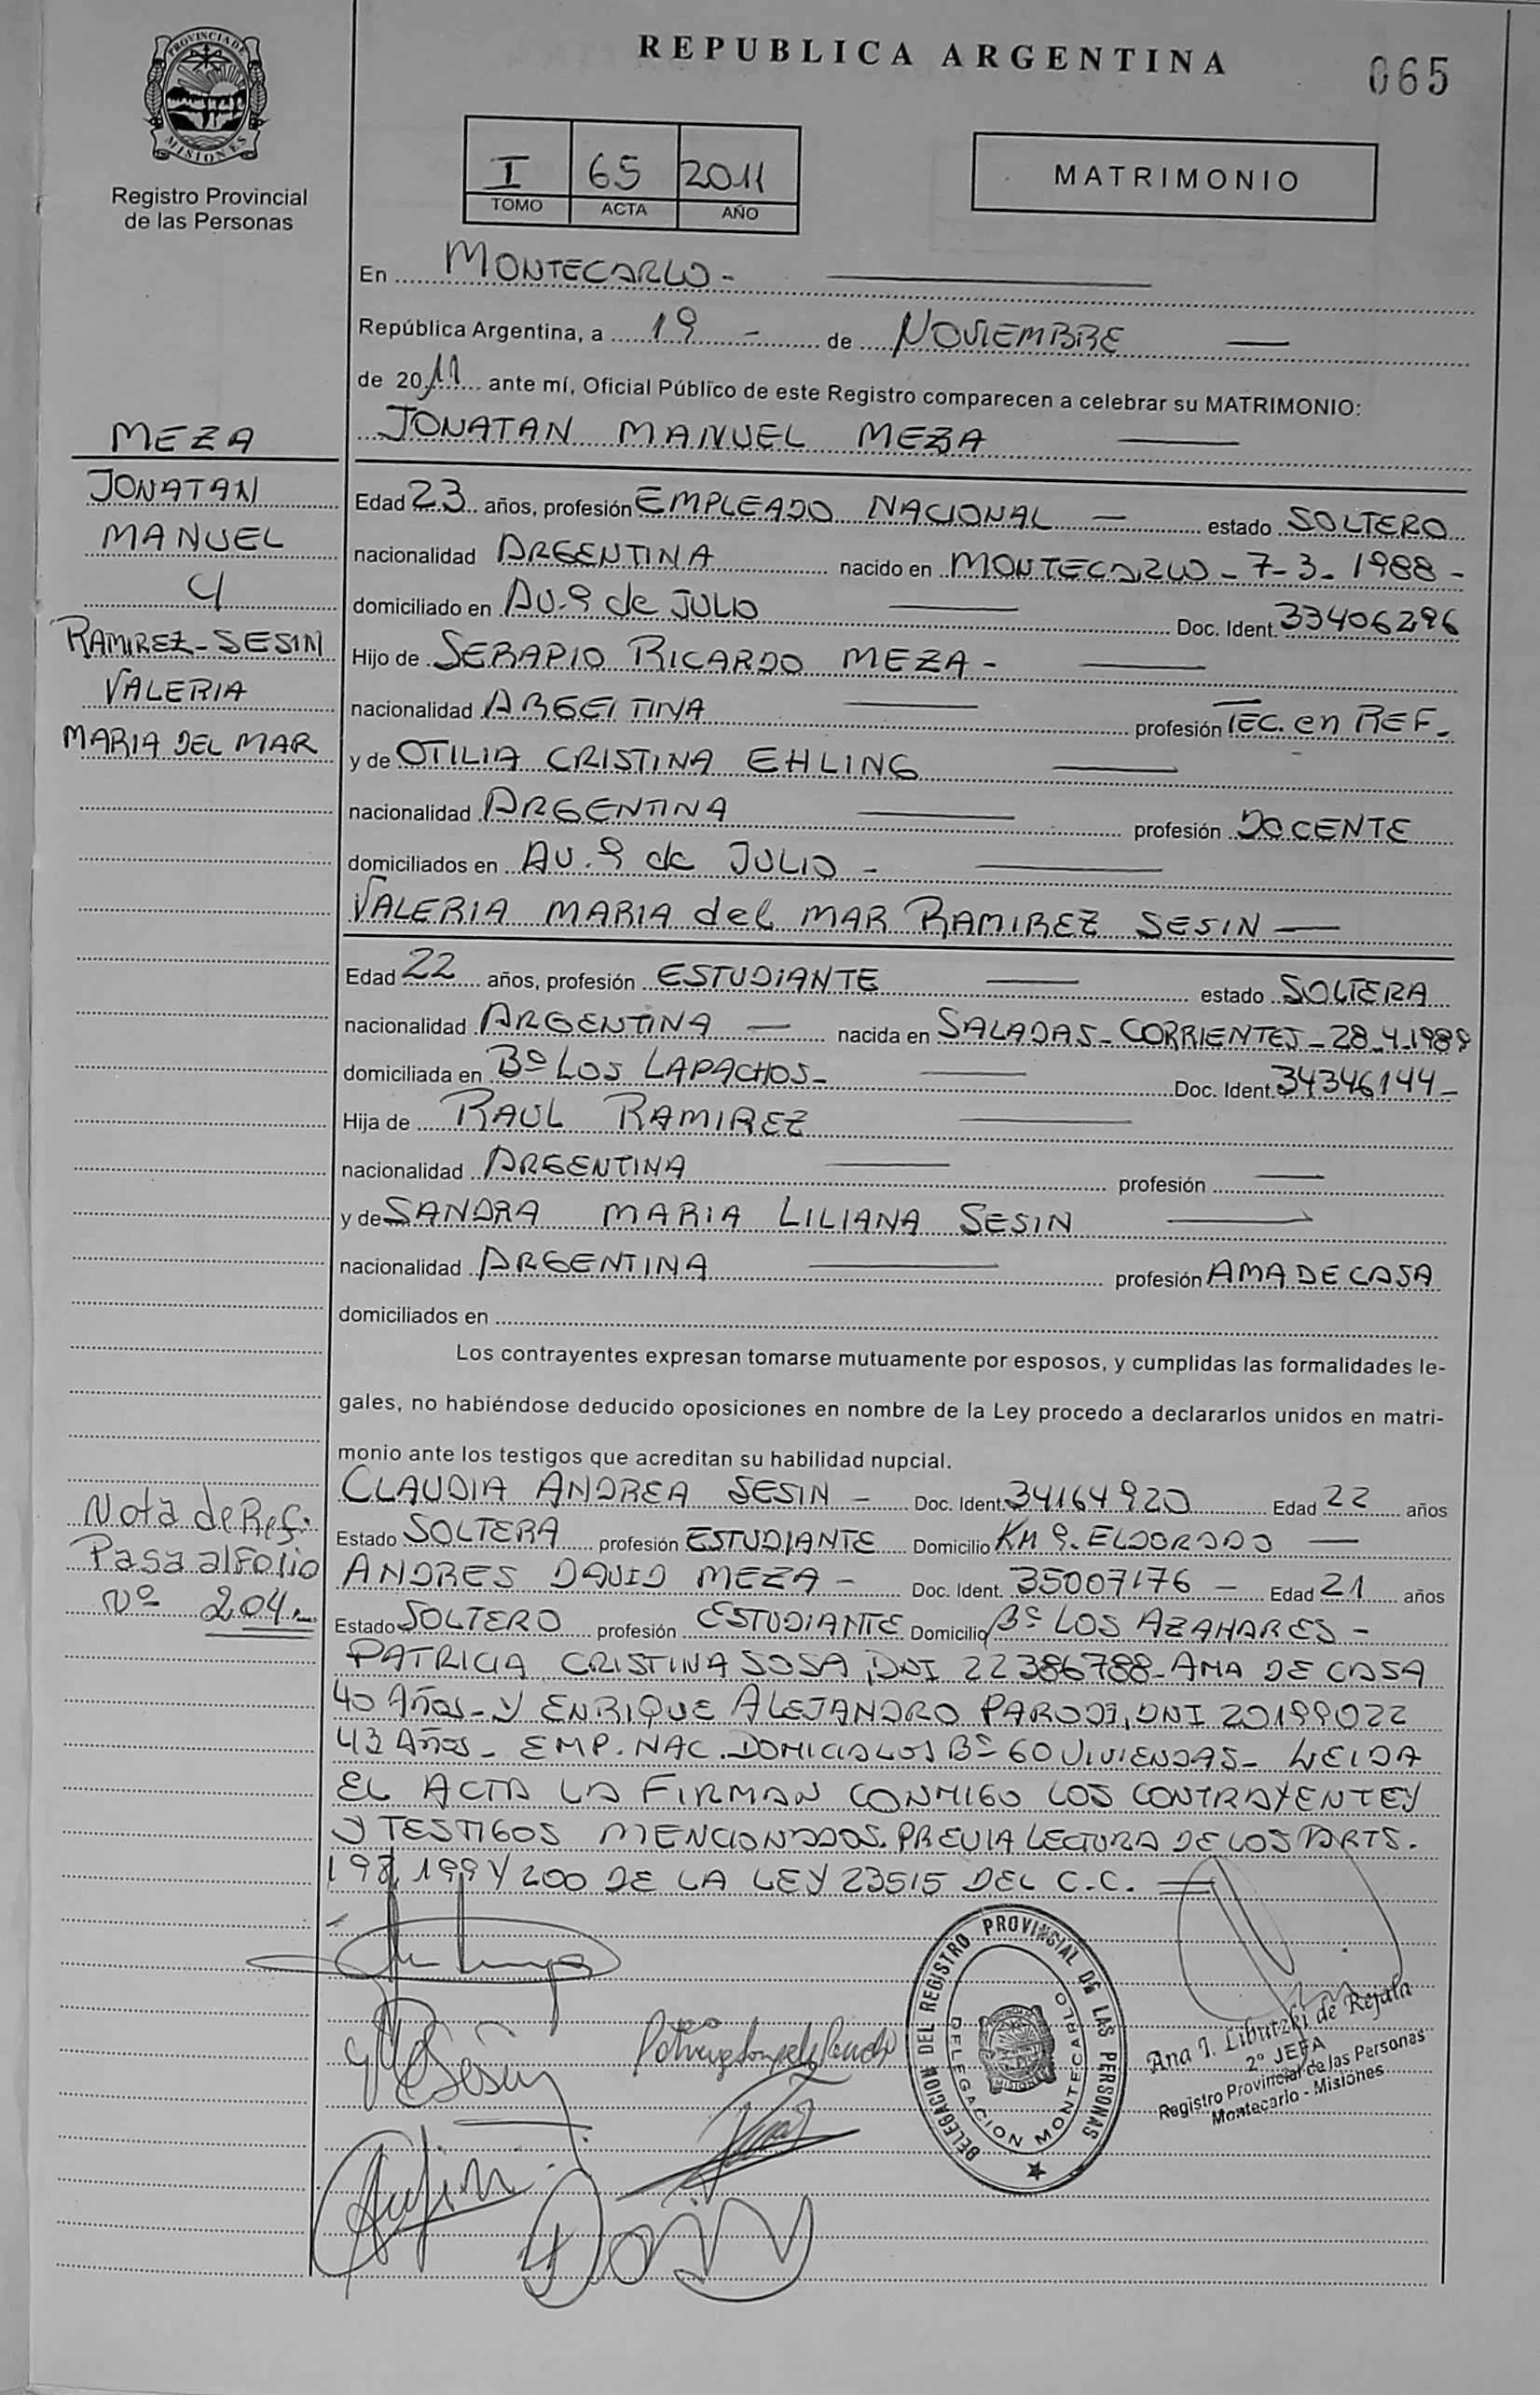 PROVINCIA DE
MISIONES
Registro Provincial
de las Personas
REPUBLICA ARGENTINA
065
I 65 2011
TOMO ACTA AÑO
MATRIMONIO
En MONTECARLO -
República Argentina, a 19 - de NOVIEMBRE
de 2011 ante mí, Oficial Público de este Registro comparecen a celebrar su MATRIMONIO:
JONATAN MANUEL MEZA
MEZA
JONATAN
MANUEL
C/
RAMIREZ-SESIN
VALERIA
MARIA DEL MAR
Edad 23 años, profesión EMPLEADO NACIONAL - estado SOLTERO
nacionalidad ARGENTINA nacido en MONTECARLO - 7-3-1988 -
domiciliado en AV. 9 de JULIO Doc. Ident. 33406296
Hijo de SERAPIO RICARDO MEZA -
nacionalidad ARGEITINA profesión TEC. en REF.
y de OTILIA CRISTINA EHLING
nacionalidad ARGENTINA profesión DOCENTE
domiciliados en AV. 9 de JULIO -
VALERIA MARIA del MAR RAMIREZ SESIN -
Edad 22 años, profesión ESTUDIANTE estado SOLTERA
nacionalidad ARGENTINA - nacida en SALADAS - CORRIENTES - 28-4-1989
domiciliada en Bº LOS LAPACHOS - Doc. Ident. 34346144 -
Hija de RAUL RAMIREZ
nacionalidad ARGENTINA profesión
y de SANDRA MARIA LILIANA SESIN
nacionalidad ARGENTINA profesión AMA DE CASA
domiciliados en
Los contrayentes expresan tomarse mutuamente por esposos, y cumplidas las formalidades le-
gales, no habiéndose deducido oposiciones en nombre de la Ley procedo a declararlos unidos en matri-
monio ante los testigos que acreditan su habilidad nupcial.
CLAUDIA ANDREA SESIN - Doc. Ident. 34164920 Edad 22 años
Estado SOLTERA profesión ESTUDIANTE Domicilio KM 9. ELDORADO -
ANDRES DAVID MEZA - Doc. Ident. 35007176 - Edad 21 años
Estado SOLTERO profesión ESTUDIANTE Domicilio Bº LOS AZAHARES -
Nota de Ref.
Pasa al Folio
Nº 204
PATRICIA CRISTINA SOSA, DNI 22386788 - AMA DE CASA
40 Años - Y ENRIQUE ALEJANDRO PARODI, DNI 20199022
43 Años - EMP. NAC. DOMICIALOS Bº 60 VIVIENDAS - LEIDA
EL ACTA LA FIRMAN CONMIGO LOS CONTRAYENTES
Y TESTIGOS MENCIONADOS. PREVIA LECTURA DE LOS ARTS.
198, 199 Y 200 DE LA LEY 23515 DEL C.C.
DELEGACION DEL REGISTRO PROVINCIAL DE LAS PERSONAS
DELEGACION MONTECARLO
MISIONES
Ana I. Libutzki de Rejala
2º JEFA
Registro Provincial de las Personas
Montecarlo - Misiones